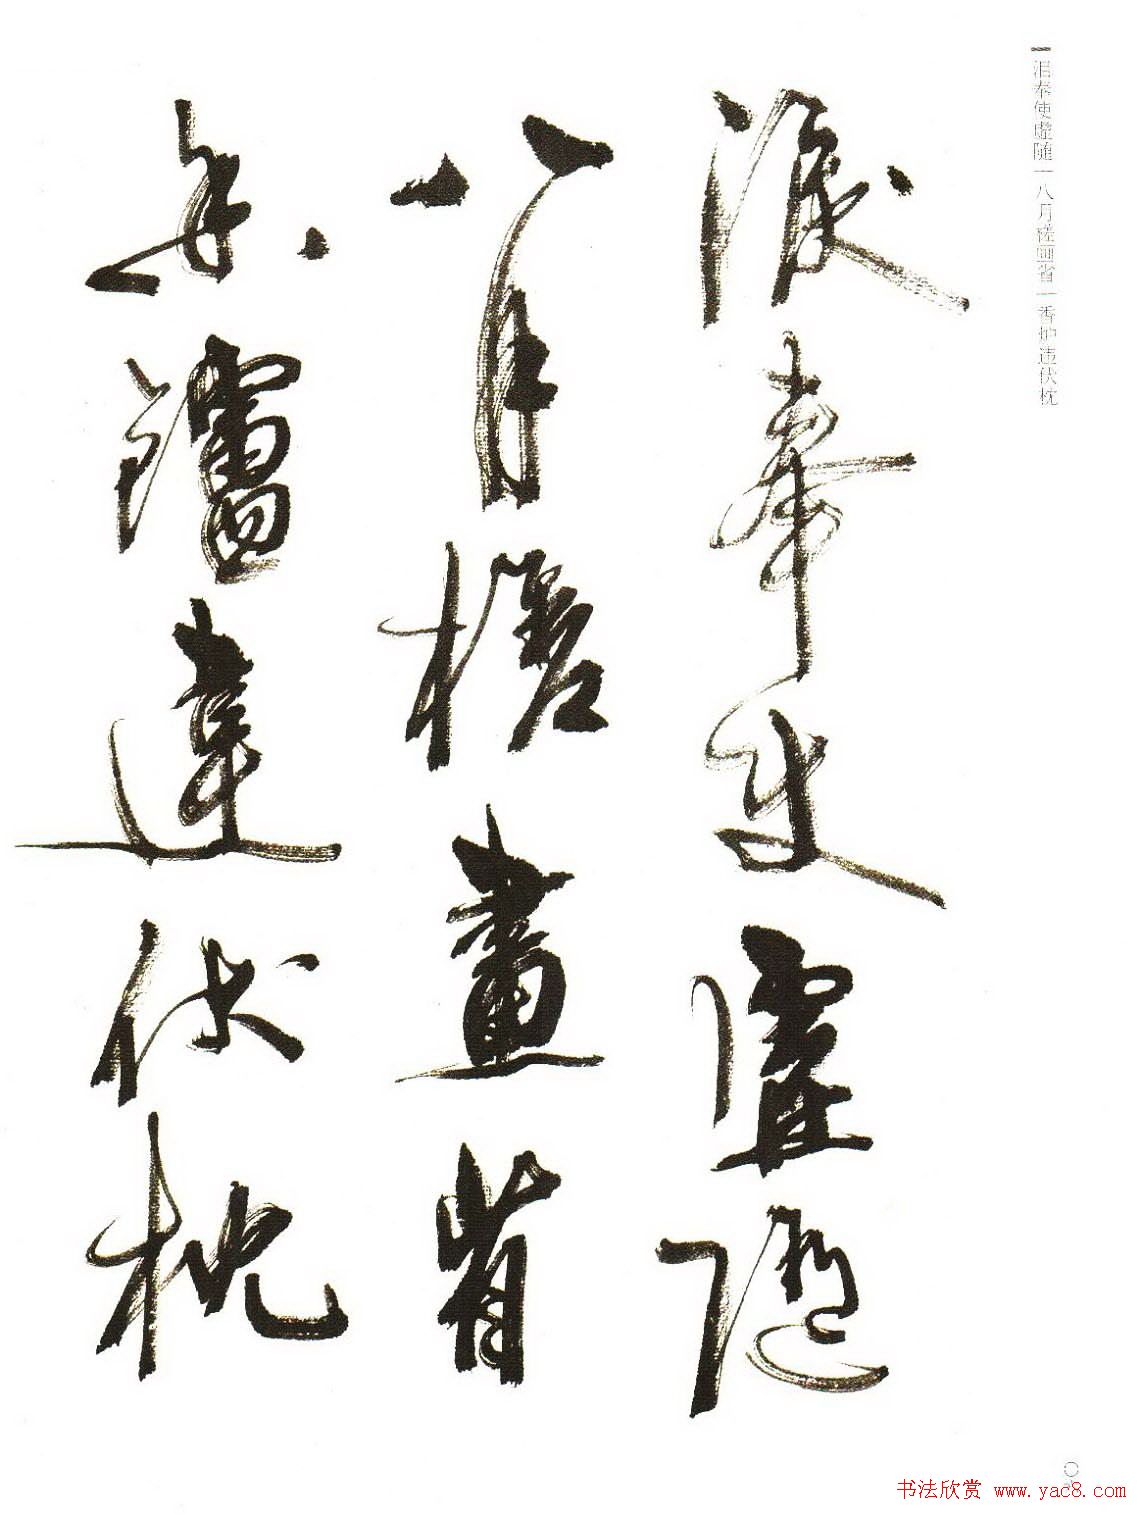 泪奉使虚随｜八月槎画省｜香炉违伏枕
淚奉使虛隨
八月槎畫省
香鑪違伏枕
书法欣赏 www.yac8.com